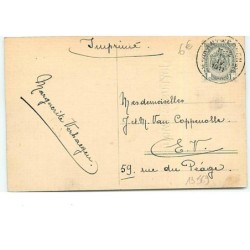 Imprimé
6€
Marguerite Verhaegen
Mesdemoiselles
J et M Van Cappenolle
E.V.
59, rue du Péage